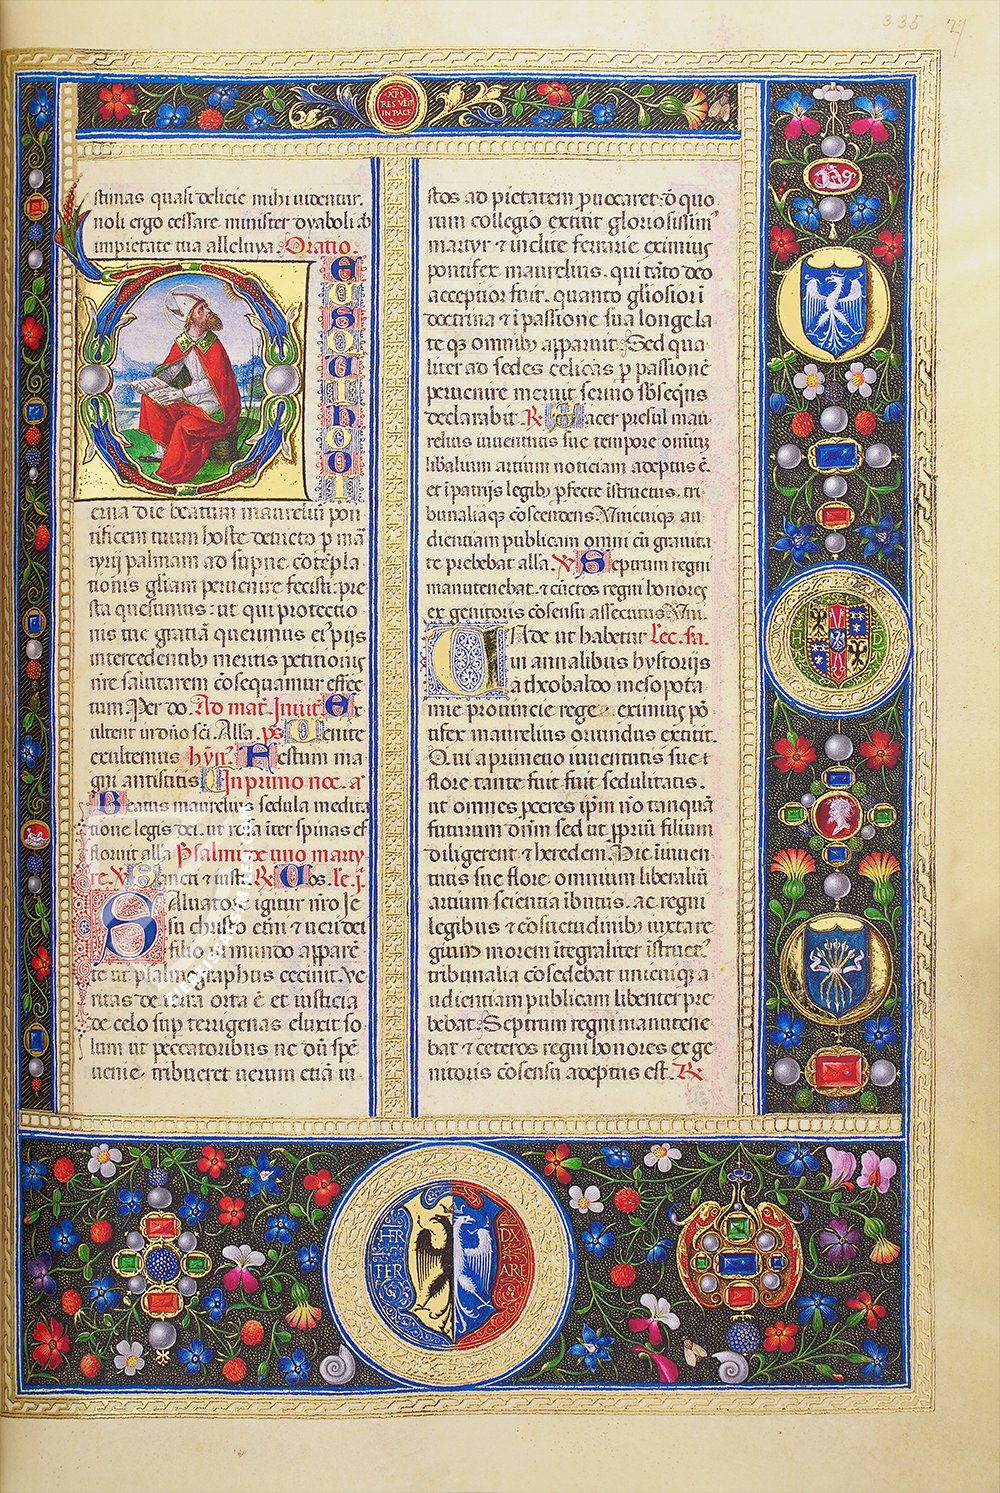 335 27
XPS
RES VEN
IN PACE
stimas quasi delicie mihi videntur.
noli ergo cessare minister dyaboli ab
impietate tua alleluya. Oratio.
Deus qui hodi
erna die beatum maureliũ pon
tificem tuum hoste devicto p mar
tyrij palmam ad supne cõtẽpla
tionis gliam pervenire fecisti. pre
sta quesumus: ut qui protectio
nis tue gratiã querimus eiꝰ pijs
intercedentibꝫ meritis petitionis
nr̃e salutarem cõsequamur effec
tum. Per do. Ad mat. Invit. Ex
ultent in dño sc̃i. Alla. ps. Venite
exultemus hỹn. Festum ma
gni antistitis In primo noc. aͣ
Beatus maurelius sedula medita
tione legis dei. ut rosa iter spinas ef
floruit alla Psalmi de uno marty
re. ℣ ℟ Le. j.
Salvatore igitur nr̃o Je
su christo etñi ⁊ veri dei
filio in mundo apparẽ
te ut psalmographus cecinit. Ve
ritas de terra orta ẽ et iusticia
de celo sup terrigenas eluxit so
lum ut peccatoribus ne dũ spẽ
venie. tribueret verum etiã iu
stos ad pietatem pvocaret. d quo
rum collegio extitit gloriosissimꝰ
martyr ⁊ inclite ferrarie eximius
pontifex maurelius. qui tãto deo
acceptior fuit. quanto gliosiori
doctrina ⁊ i passione sua longe la
te qꝫ omnibꝫ apparuit. Sed qua
liter ad sedes celicas p passionẽ
pervenire meruit sermo sbseqẽs
declarabit. ℟ Sacer presul mau
relius iuventutis sue tempore omiũ
libalium artium noticiam adeptus ẽ.
et i patrijs legibꝫ pfecte istructus. tri
bunaliaqꝫ cõscendens. Unicuiqꝫ au
dientiam publicam omni cũ gravita
te prebebat alla. ℣ Septrum regni
manutenebat. ⁊ cũctos regni honores
ex genitoris cõsensu assecutus. Uni.
Unde ut habetur Lec. sa.
in annalibus hystorijs
a theobaldo mesopota
mie provincie rege. ⁊ eximius põ
tifex maurelius oriundus extitit.
Qui a primevo iuventutis sue t
flore tante fuit fuit sedulitatis.
ut omnes pceres ipm nõ tanquã
futurum dñm sed ut ppriũ filium
diligerent ⁊ heredem. Hic iuven
tutis sue flore omnium liberaliũ
artium scientia ibutus. ac regni
legibus ⁊ cõsuetudinibꝫ iuxta re
gium morem integraliter istructꝰ
tribunalia cõsedebat unicuiqꝫ a
udientiam publicam libenter pre
bebat. Septrum regni manutene
bat ⁊ ceteros regni honores ex ge
nitoris cõsensu adeptus est. ℟
H D
HER DVX
FER ARE